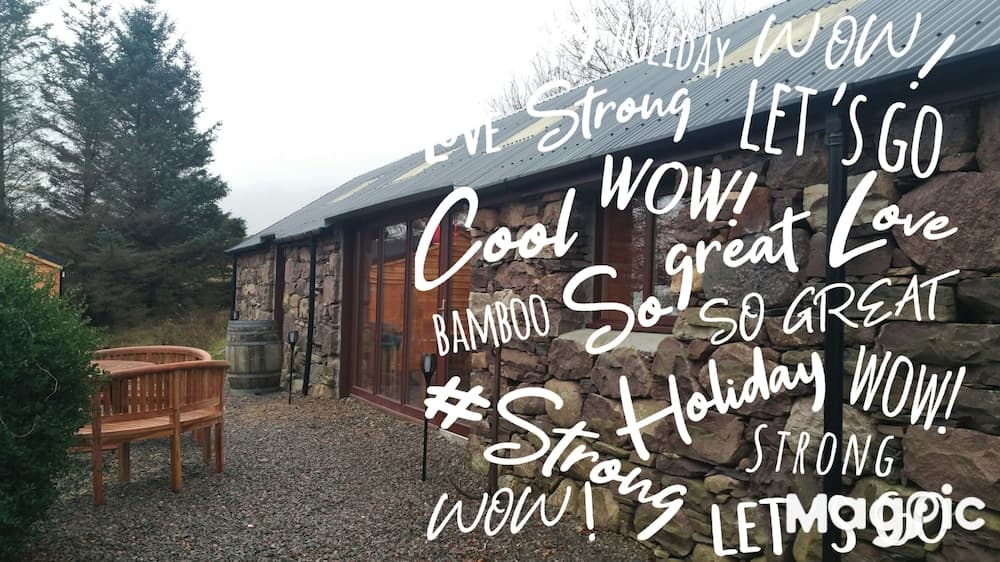 HOLIDAY WOW!
LOVE Strong LET'S GO
WOW!
Cool great Love
BAMBOO So SO GREAT
#Strong Holiday WOW!
STRONG
WOW! LET'S GO
Magpic